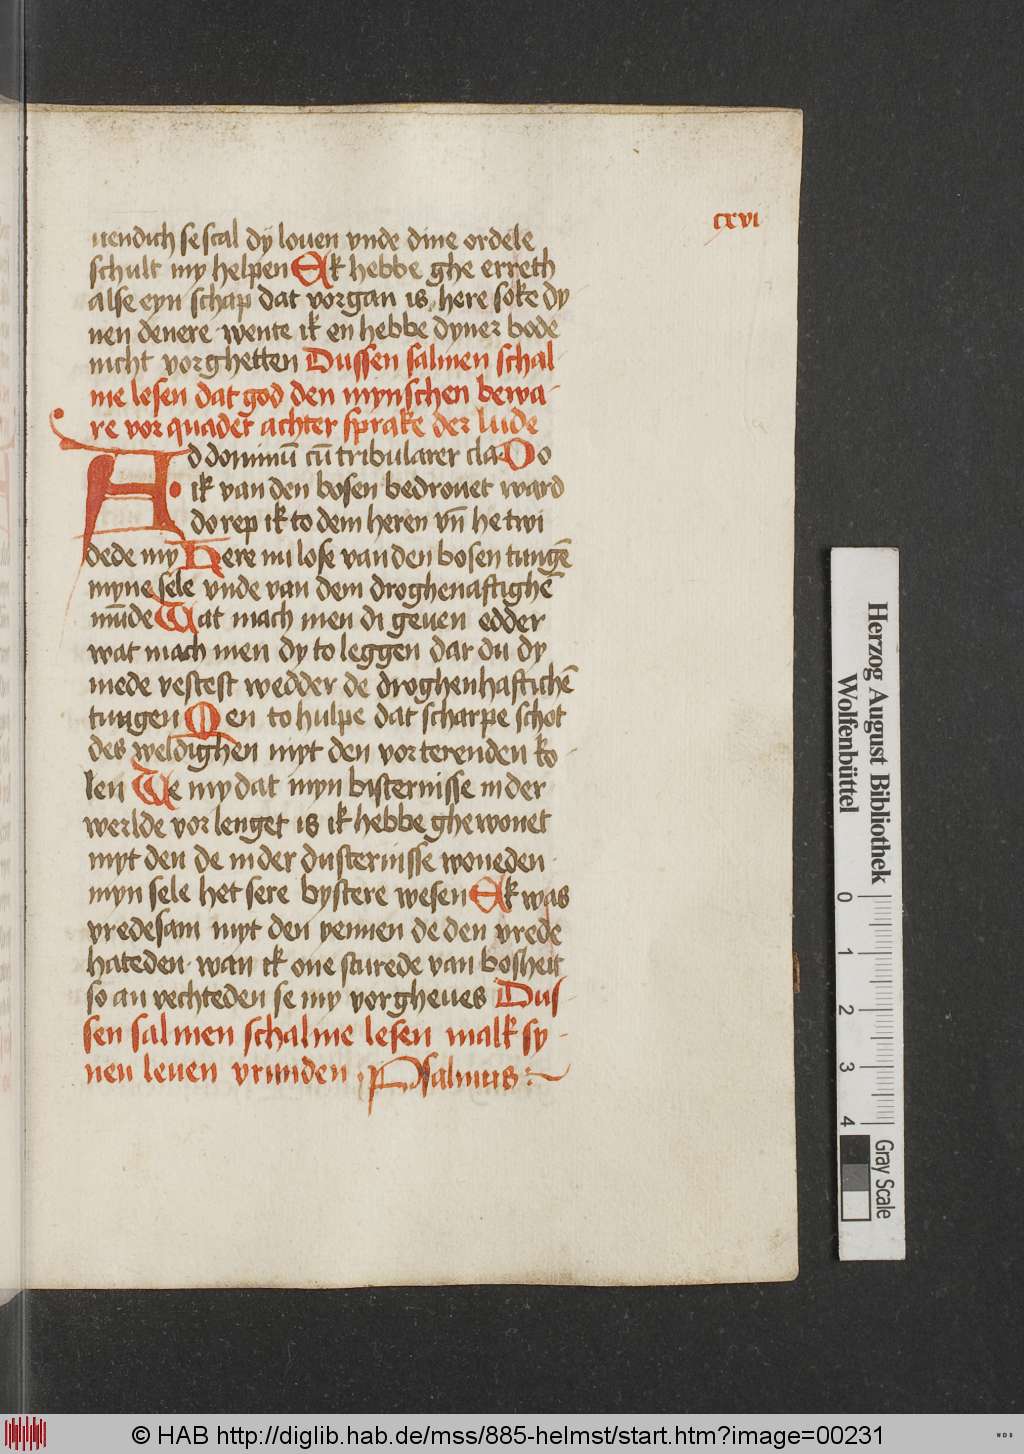 cxvi
uendich se scal dy louen vnde dine ordele
schult my helpen Ek hebbe ghe erreth
alse eyn schap dat vorgan is here soke dy
nen denere wente ik en hebbe dyner bode
nicht vorghetten Dussen salmen schal
me lesen dat god den mynschen bewa-
re vor quader achter sprake der lude
Ad dominū cū tribularer cla Do
ik van den bosen bedrouet ward
do rep ik to dem heren vn̄ he twi
dede my Here nu lose van den bosen tungē
myne sele vnde van dem droghenaftighē
mūde Wat mach men di geuen edder
wat mach men dy to leggen dar du dy
mede vestest wedder de droghenhaftichē
tungen Den to hulpe dat scharpe schot
des weldighen myt den vorterenden ko-
len We my dat myn bisternisse in der
werlde vorlenget is ik hebbe ghewonet
myt den de in der dusternisse woneden
myn sele het sere bystere wesen Ek was
vredesam myt den yennen de den vrede
hateden wan ik one sturede van bosheit
so an vechteden se my vorgheues Dus-
sen salmen schalme lesen malk sy-
nen leuen vrunden Psalmus
Herzog August Bibliothek
Wolfenbüttel
0 1 2 3 4
Gray Scale
© HAB http://diglib.hab.de/mss/885-helmst/start.htm?image=00231